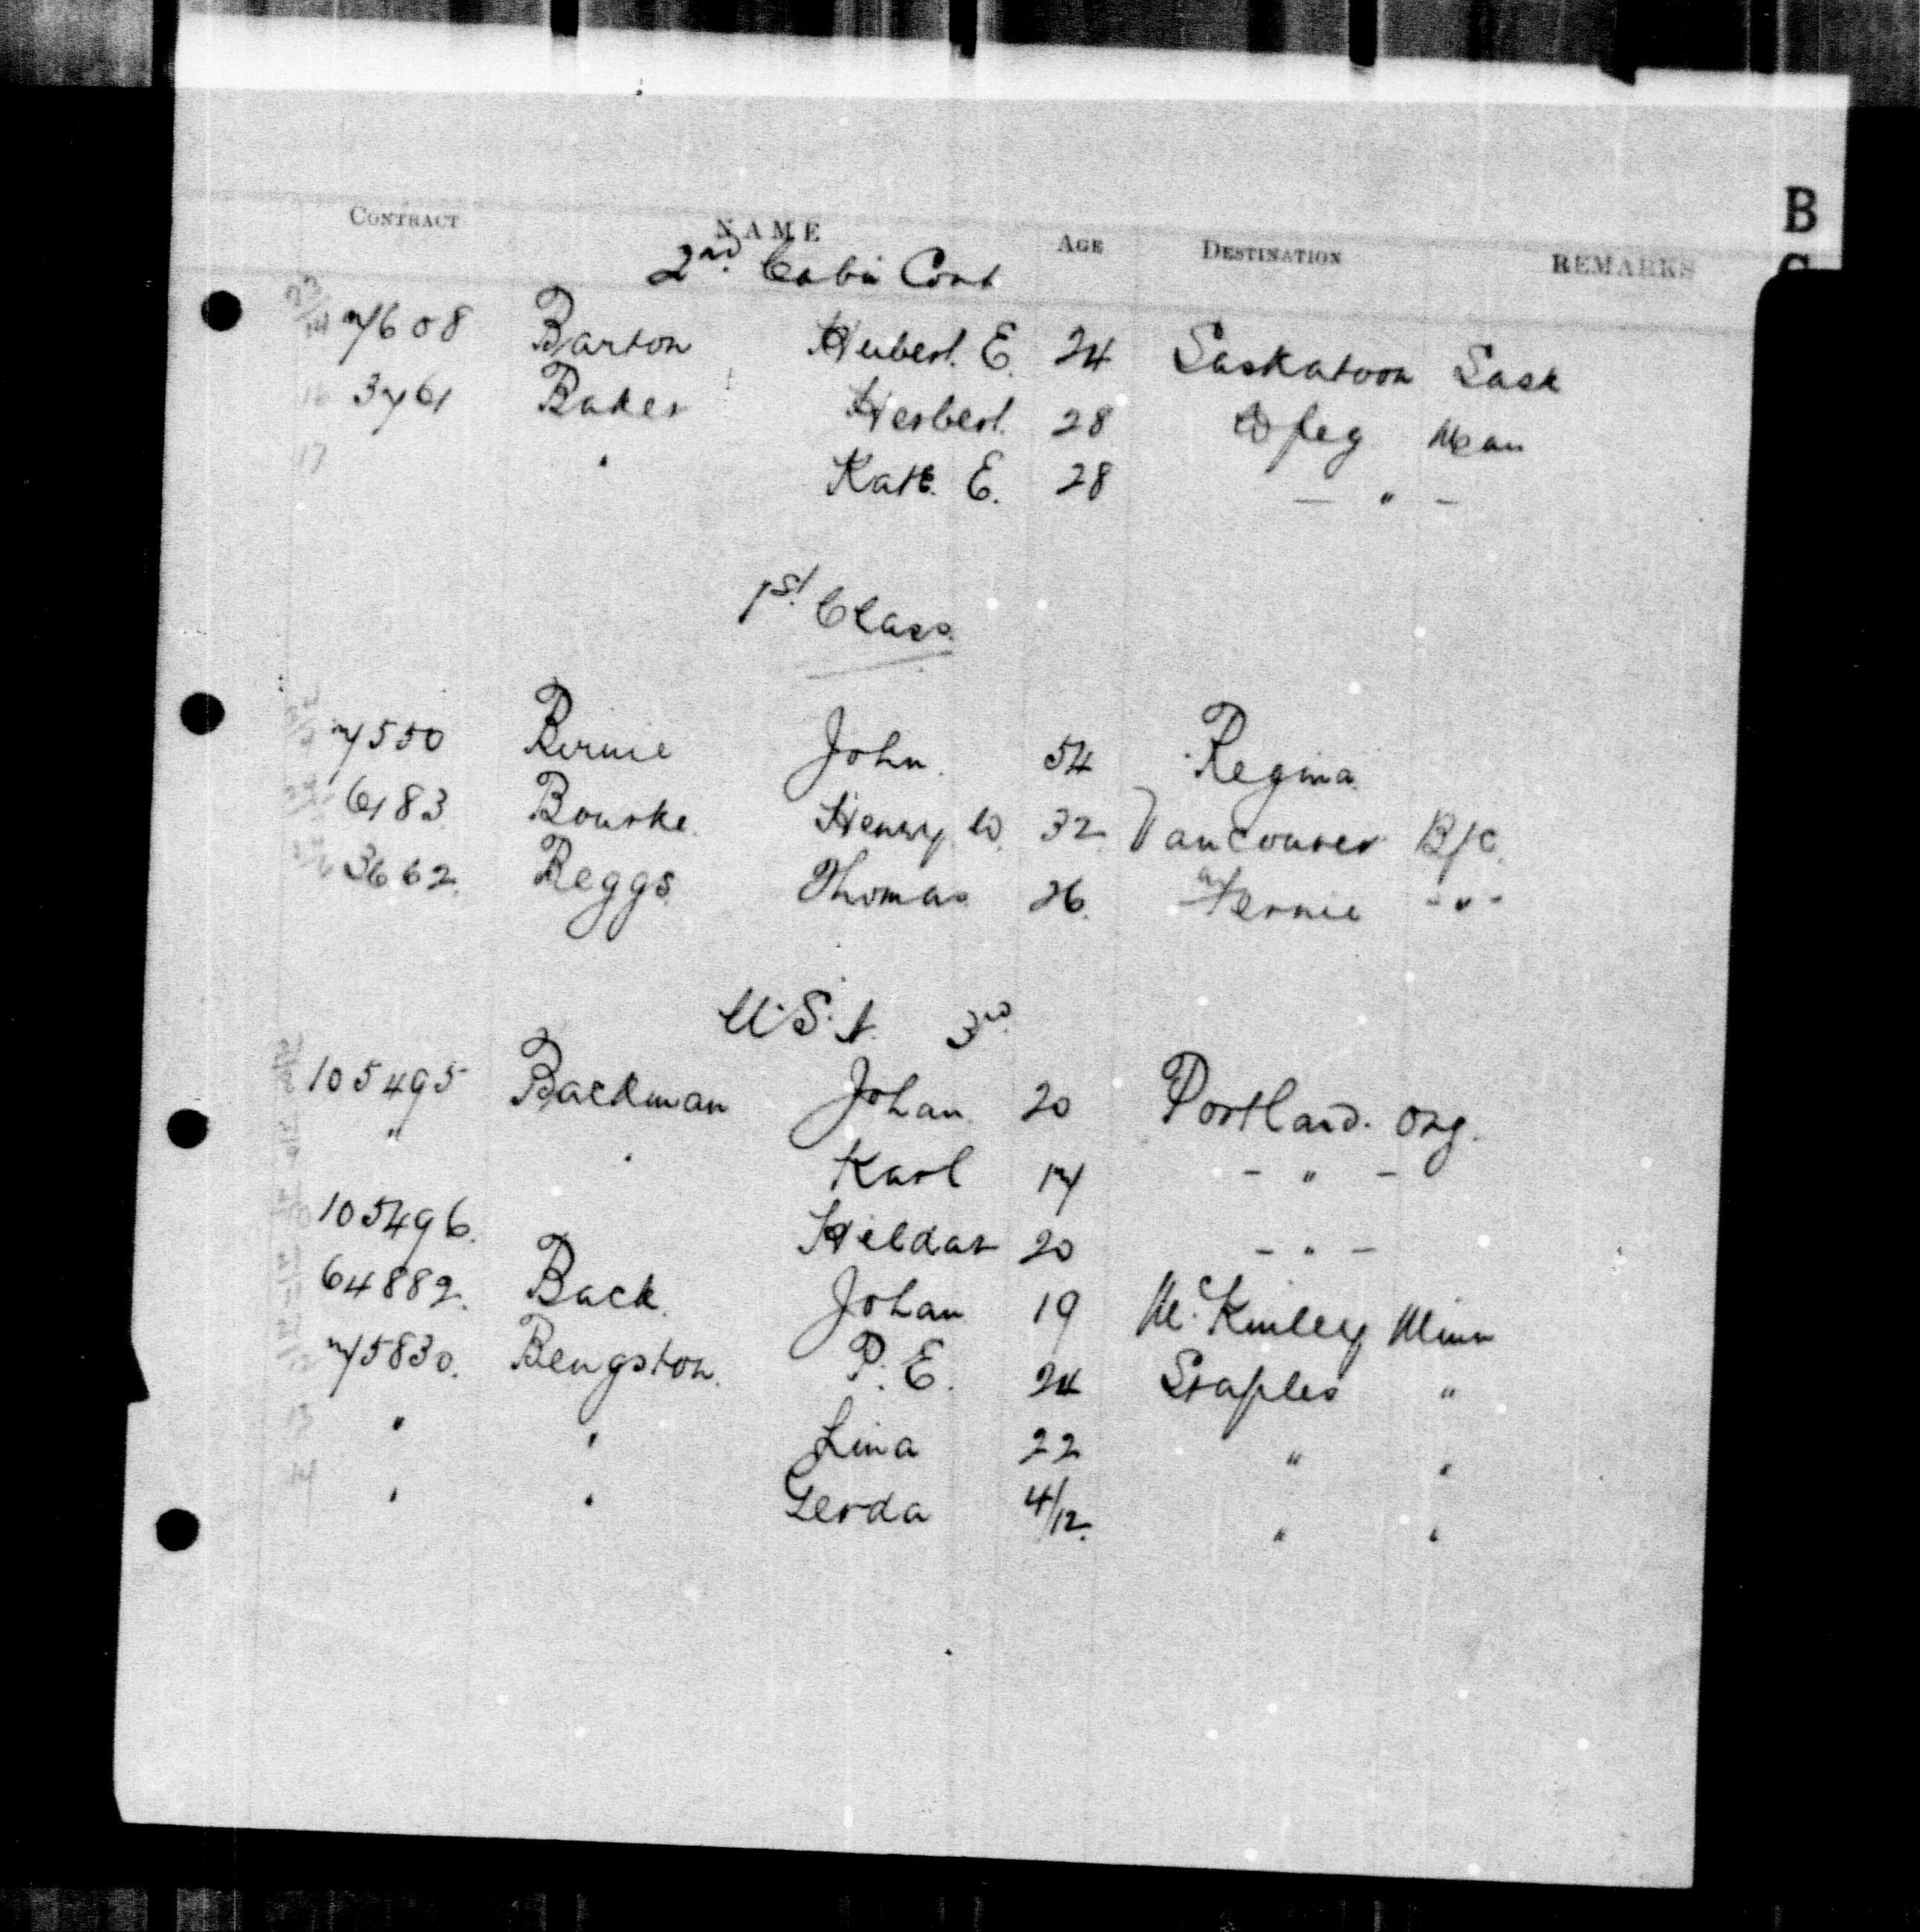 B
CONTRACT NAME AGE DESTINATION REMARKS
2nd Cabin Cont
7608 Barton Hubert. E. 24 Saskatoon Sask
16 3761 Baker Herbert. 28 Wpeg Man
17 " Kate. E. 28 — " —
1st Class
7550 Birnie John. 54 Regina
6183 Bourke. Henry W. 32 Vancouver B/C.
3662. Beggs Thomas 26. Fernie - " -
U.S.A. 3rd
105495 Backman Johan 20 Portland. Org.
" " Karl 17 - " -
105496. Heldar 20 - " -
64882. Back. Johan 19 Mc Kinley Minn
75830. Bengston. P. E. 24 Staples "
13 " " Lina 22 " "
14 " " Gerda 4/12. " "